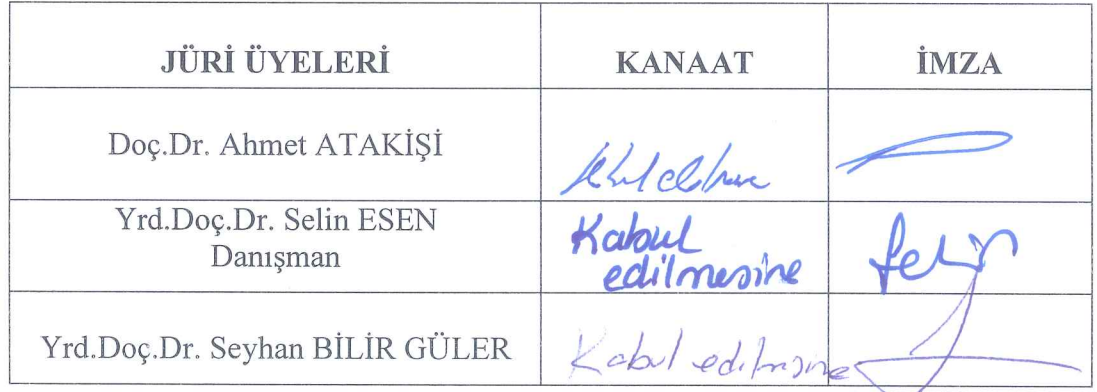 JÜRİ ÜYELERİ KANAAT İMZA
Doç.Dr. Ahmet ATAKİŞİ
Yrd.Doç.Dr. Selin ESEN Kabul
Danışman edilmesine
Yrd.Doç.Dr. Seyhan BİLİR GÜLER Kabul edilmesine